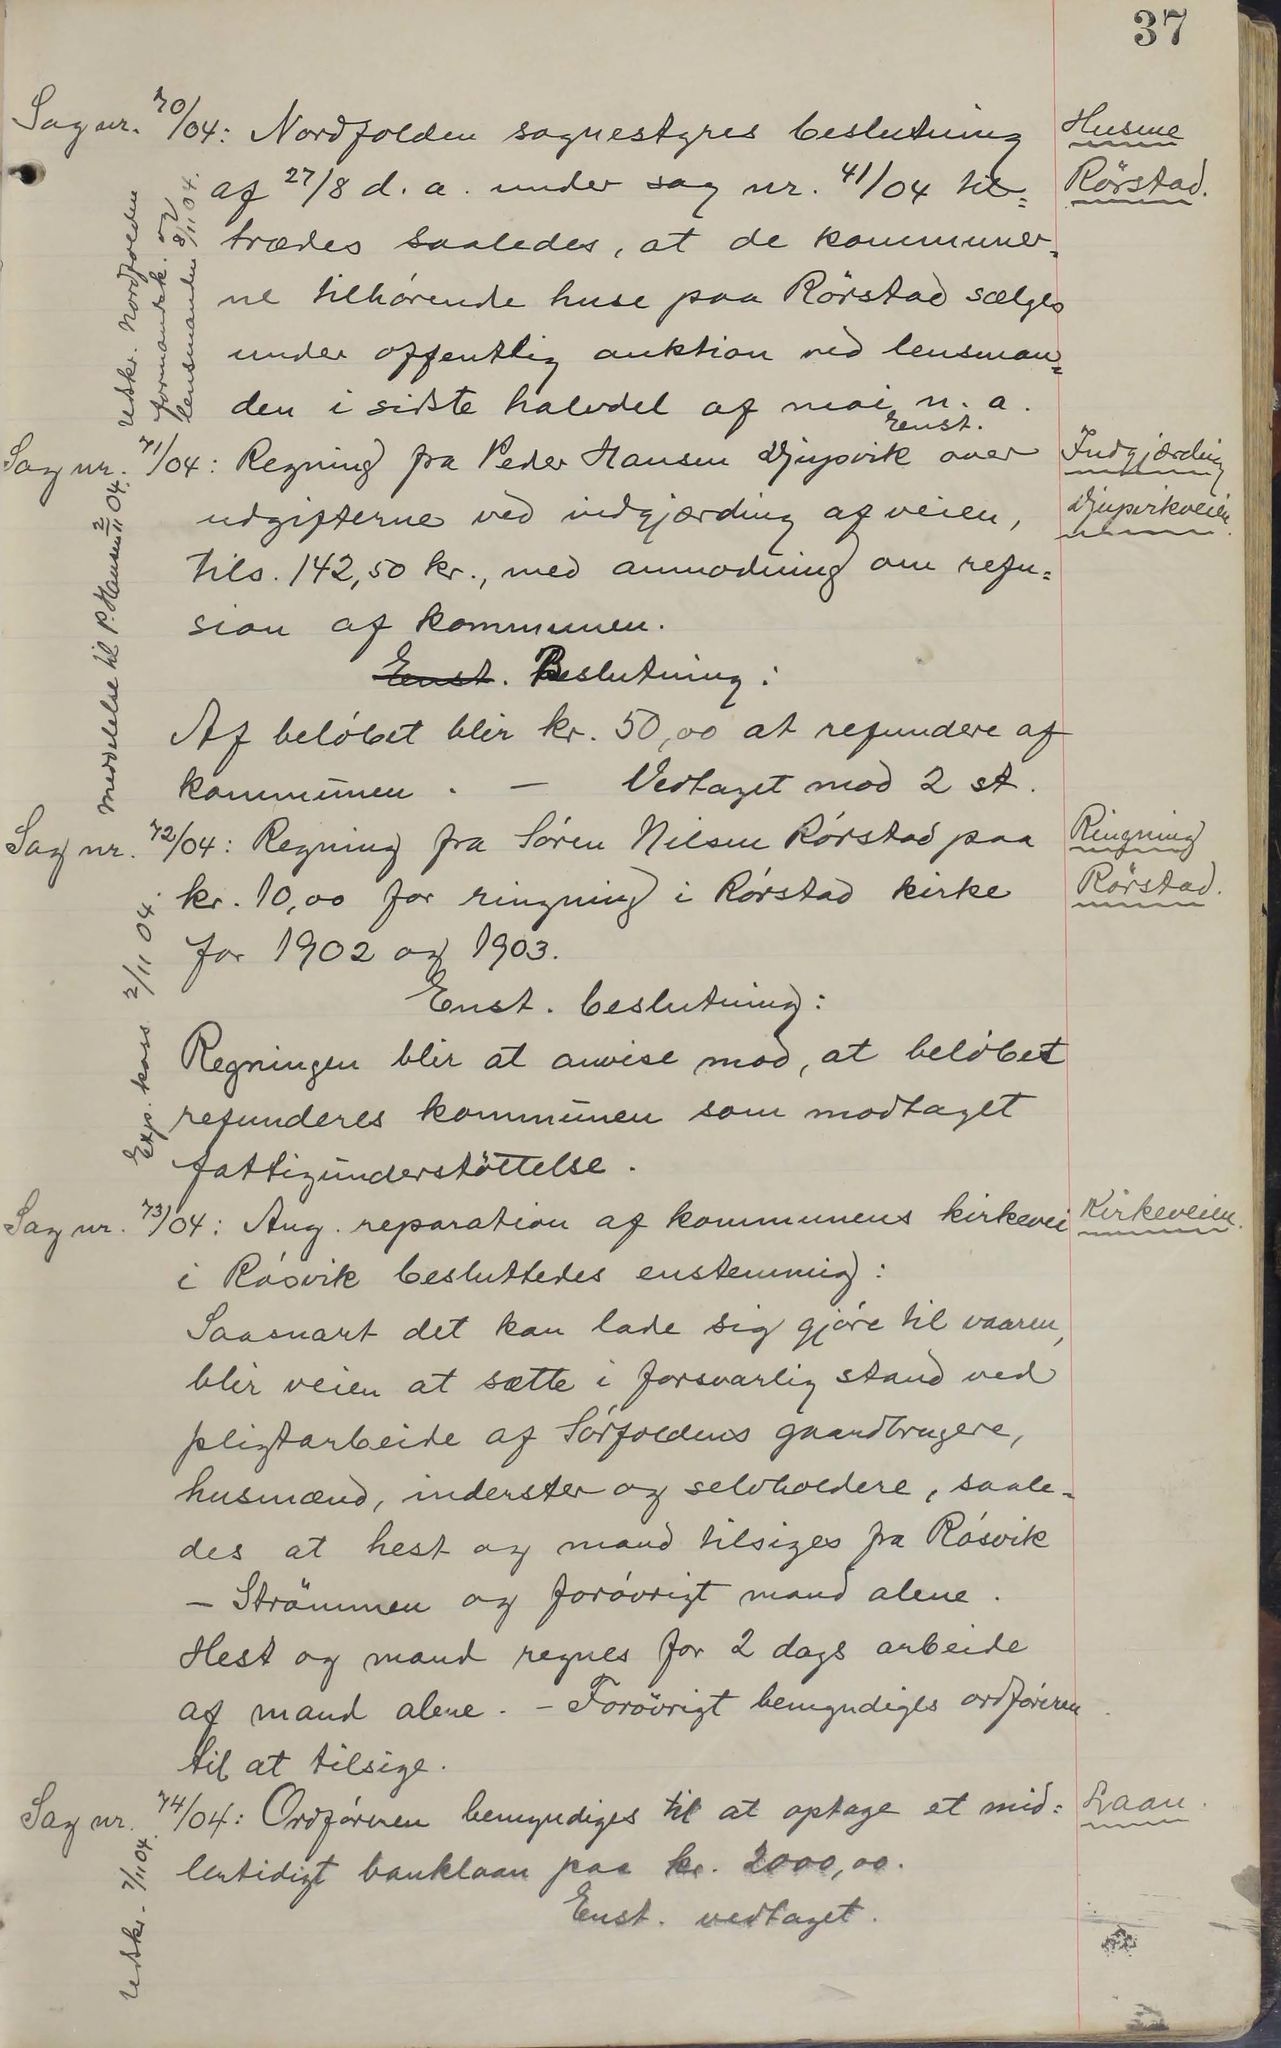 37
Sag nr. 70/04: Nordfolden sognestyres beslutning
Husene
Rörstad.
af 27/8 d. a. under sag nr. 41/04 til=
trædes saaledes, at de kommuner=
ne tilhørende huse paa Rörstad sælges
under offentlig auktion ved lensman=
den i sidste halvdel af mai n. a.
Enst.
Utskr. Nordfolden
formandsk. og
lensmanden 8/11 04.
Sag nr. 71/04: Regning fra Peder Hansen Djupvik over
Indgjærding
Djupvikveien.
udgifterne ved indgjærding af veien,
tils. 142,50 kr., med anmodning om refu=
sion af kommunen.
Enst. Beslutning:
Af beløbet blir kr. 50,00 at refundere af
kommunen. — Vedtaget mod 2 st.
Meddelelse til P. Hansen 2/11 04.
Sag nr. 72/04: Regning fra Søren Nilsen Rørstad paa
Ringning
Rörstad.
kr. 10,00 for ringning i Rørstad kirke
for 1902 og 1903.
Enst. beslutning:
Regningen blir at anvise mod, at beløbet
refunderes kommunen som modtaget
fattigunderstöttelse.
Exp. kass 2/11 04.
Sag nr. 73/04: Ang. reparation af kommunens kirkevei
Kirkeveien.
i Røsvik besluttedes enstemmig:
Saasnart det kan lade sig gjøre til vaaren,
blir veien at sætte i forsvarlig stand ved
pligtarbeide af Sørfoldens gaardbrugere,
husmænd, inderster og selvholdere, saale=
des at hest og mand tilsiges fra Røsvik
– Strömmen og forøvrigt mand alene.
Hest og mand regnes for 2 dags arbeide
af mand alene. – Forövrigt bemyndiges ordføreren
til at tilsige.
Sag nr. 74/04: Ordføreren bemyndiges til at optage et mid=
Laan.
lertidigt banklaan paa kr. 2000,00.
Enst. vedtaget.
Utskr. 7/11 04.